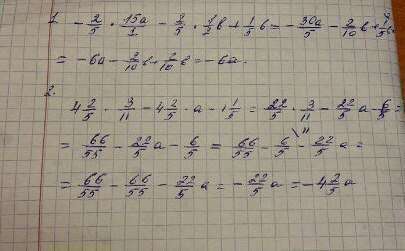 1. - 2/5 · 15a/1 - 2/5 · 1/2 b + 1/5 b = - 30a/5 - 2/10 b + 1/5 b
= -6a - 2/10 b + 2/10 b = -6a.
2.
4 2/5 · 3/11 - 4 2/5 · a - 1 1/5 = 22/5 · 3/11 - 22/5 a - 6/5 =
= 66/55 - 22/5 a - 6/5 = 66/55 - 6/5 \11 - 22/5 a =
= 66/55 - 66/55 - 22/5 a = - 22/5 a = -4 2/5 a